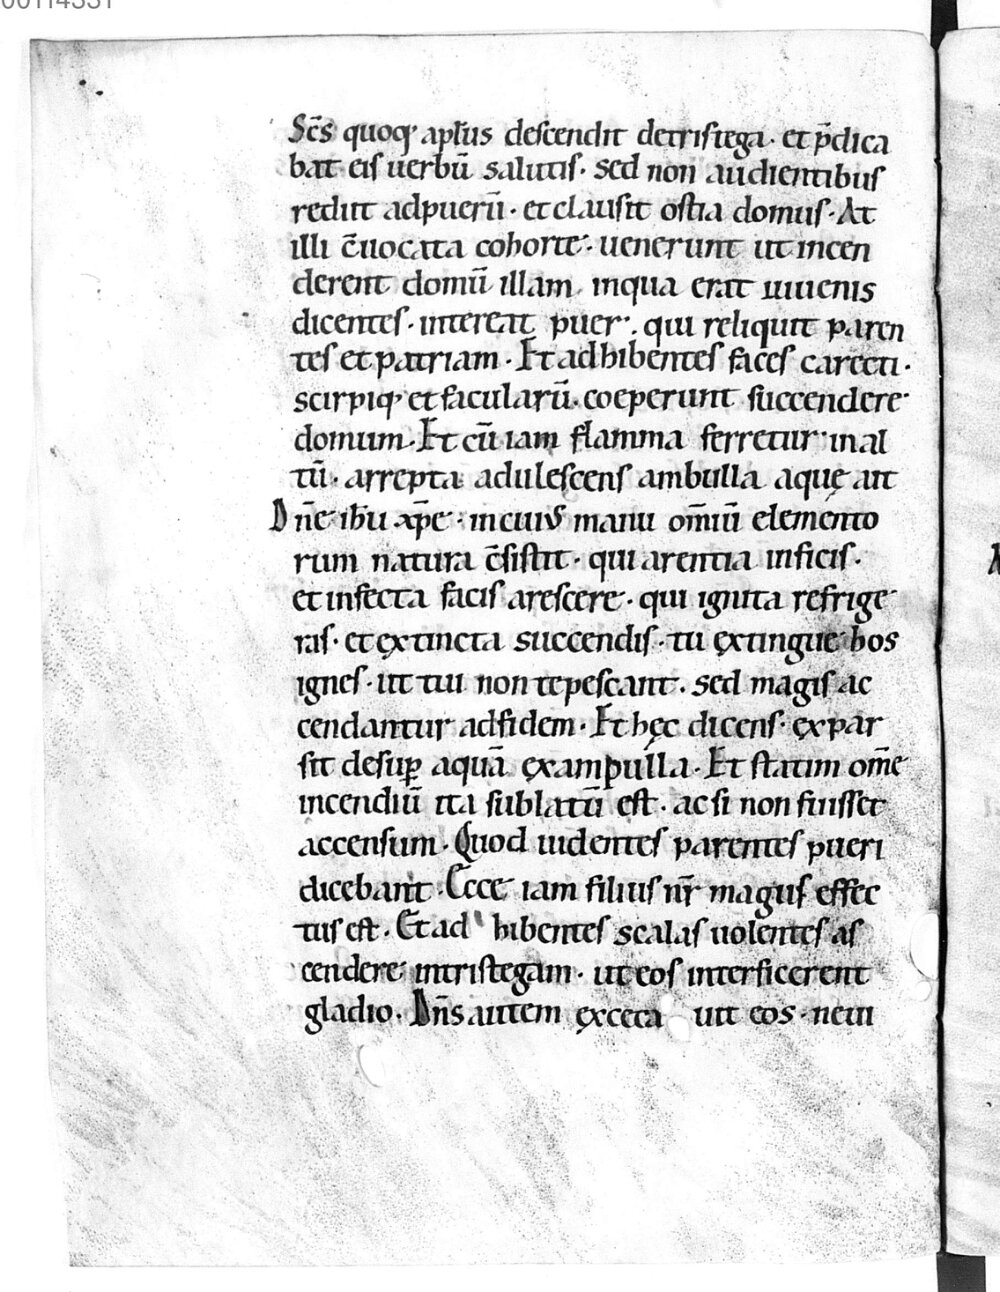 00114331
Sc̄s quoq; apl̄us descendit detristega· et p̄dica
bat eis uerbū salutis· sed non audientibus
rediit adpuerū· et clausit ostia domus· At
illi c̄uocata cohorte· uenerunt ut incen
derent domū illam inqua erat iuuenis
dicentes· intereat puer· qui reliquit paren
tes et patriam· Et adhibentes faces carecti·
scirpiq; et facularū· coeperunt succendere
domum· Et cū iam flamma ferretur inal
tū· arrepta adulescens ambulla aquę ait
Dn̄e ihu xp̄e· incuius manu om̄iū elemento
rum natura c̄sistit· qui arentia inficis·
et infecta facis arescere· qui ignita refrige
ras· et extincta succendis· tu extingue hos
ignes· ut tui non tepescant· sed magis ac
cendantur adfidem· Et hęc dicens· expar
sit desup̱ aquā exampulla· Et statim om̄e
incendiū ita sublatū est· ac si non fuisset
accensum· Quod uidentes parentes pueri
dicebant· Ecce iam filius nr̄ magus effec
tus est· Et ad hibentes scalas uolentes as
cendere intristegam· ut eos interficerent
gladio· Dn̄s autem exceca uit eos· nein